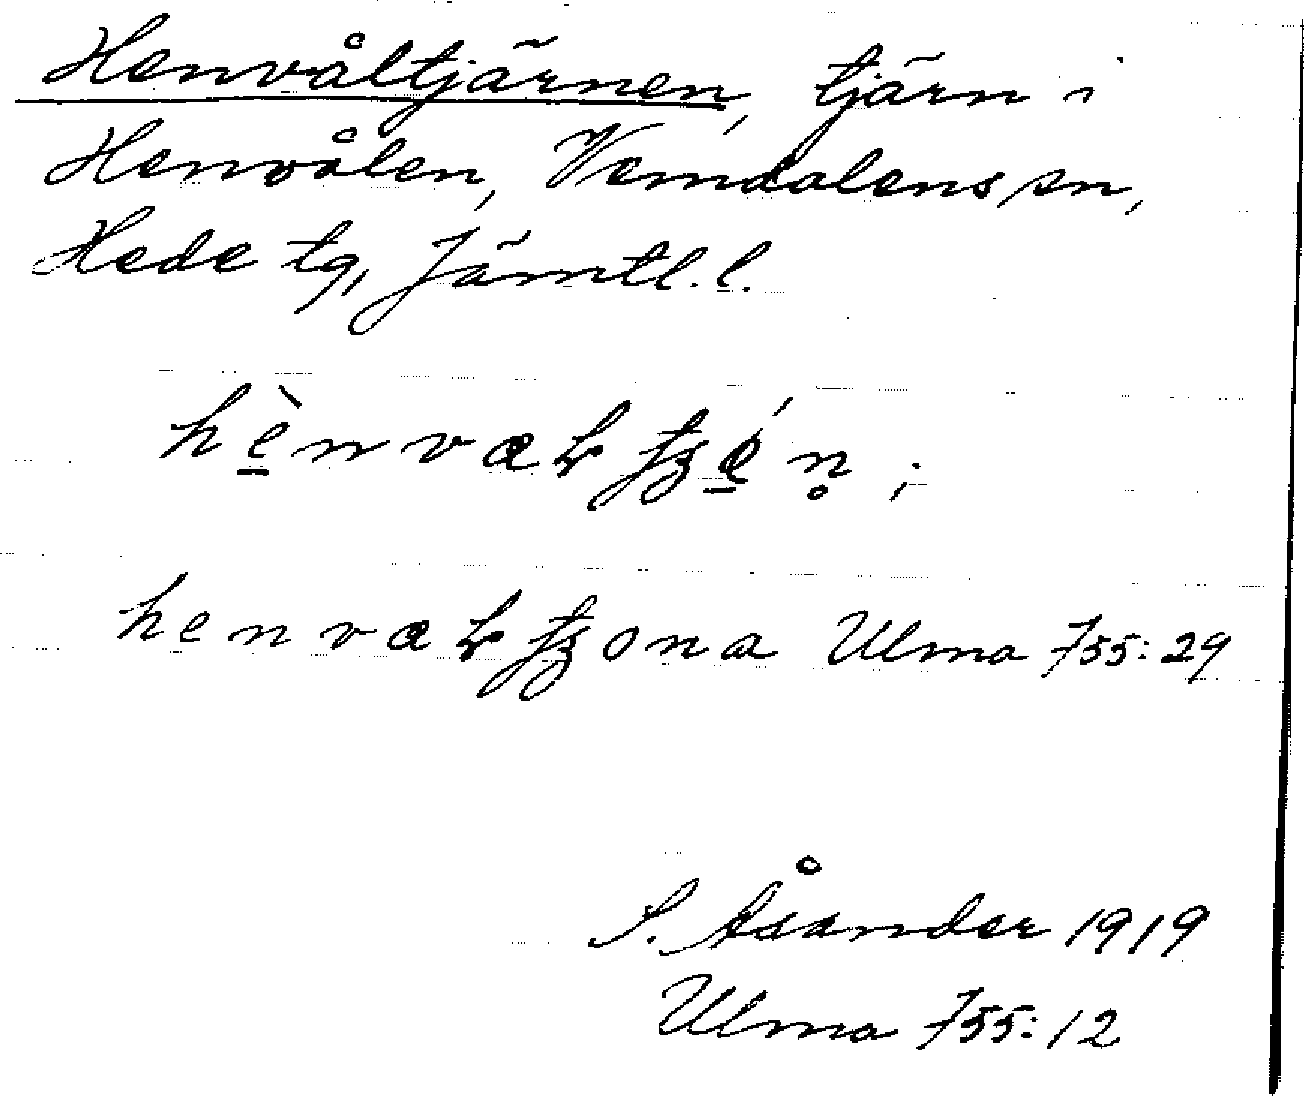 Henvåltjärnen, tjärn i
Henvålen, Vemdalens sn,
Hede tg, Jämtl. l.
Ulma 755:29
S. Åsander 1919
Ulma 755:12